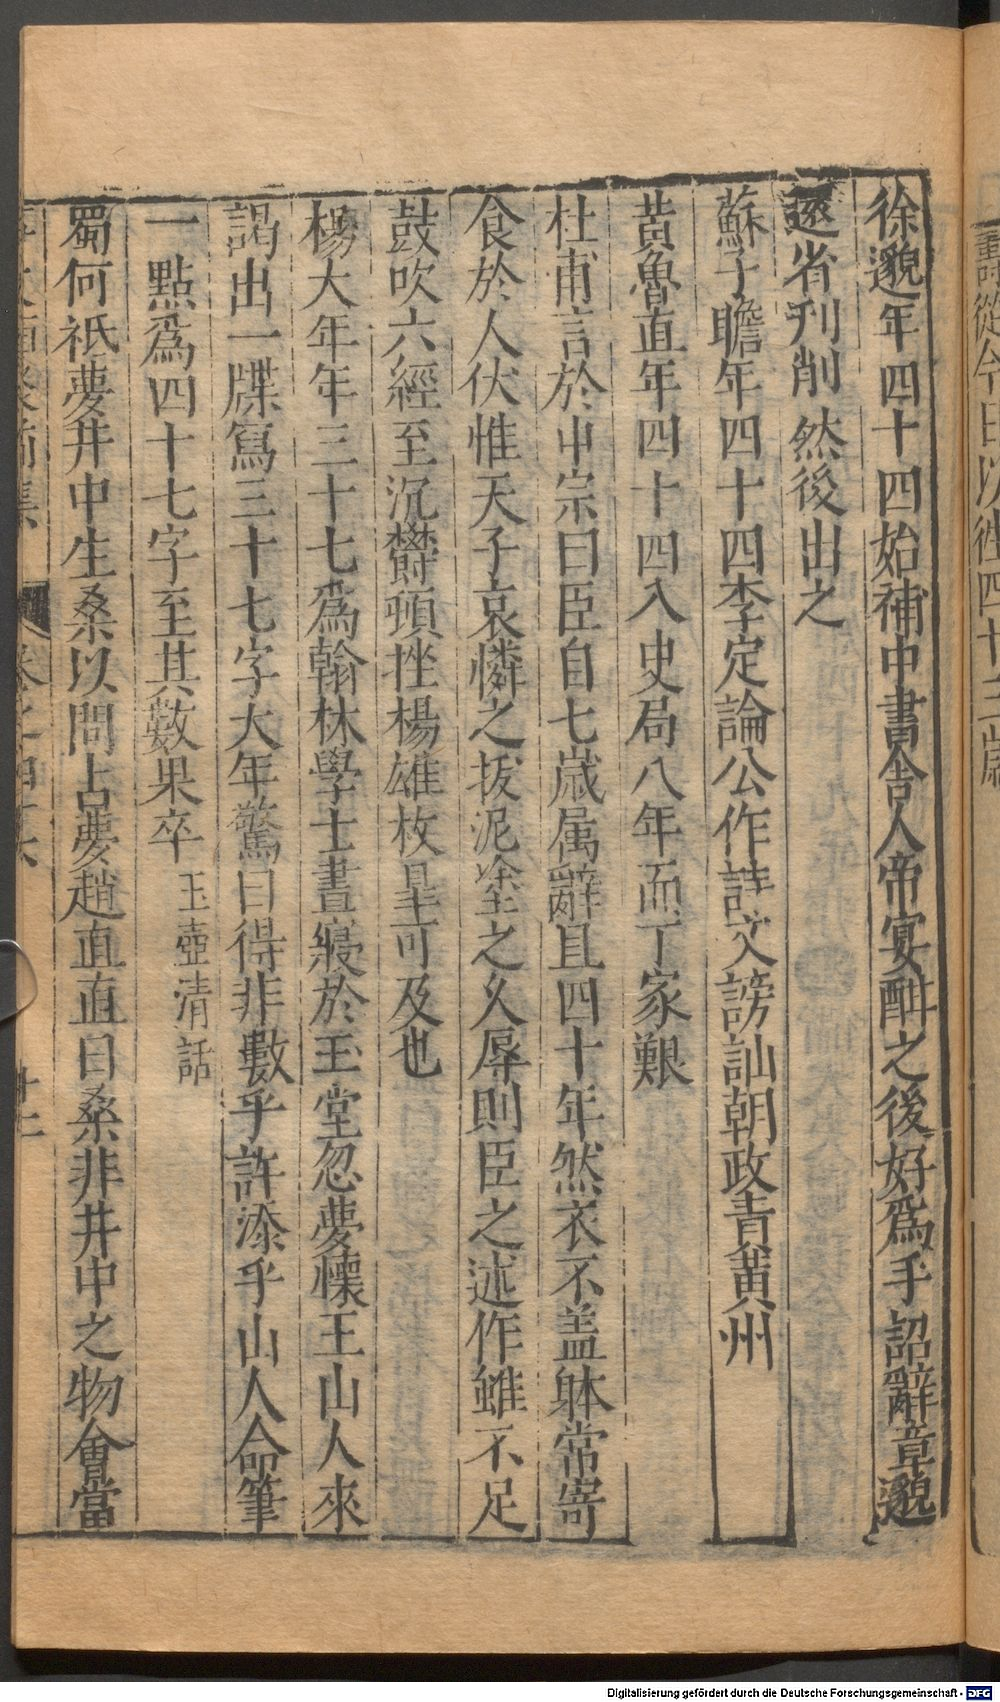 徐邈年四十四始補中書舎人帝宴酣之後好爲手詔辭章邈
還省刋削然後出之
蘇子瞻年四十四李定論公作詩文謗訕朝政責黃州
黃魯直年四十四入史局八年而丁家艱
杜甫言於中宗曰臣自七歲属辭且四十年然衣不盖躰常寄
食於人伏惟天子哀憐之拔泥塗之久辱則臣之述作雖不足
鼓吹六經至沉欝頓挫楊雄枚臯可及也
楊大年年三十七爲翰林學士晝寢於玉堂忽夢懷玉山人來
謁出一牒寫三十七字大年驚曰得非數乎許添乎山人命筆
一點爲四十七字至其數果卒 玉壺清話
蜀何祇夢井中生桑以問占夢趙直直曰桑非井中之物會當
卷之四
Digitalisierung gefördert durch die Deutsche Forschungsgemeinschaft - DFG